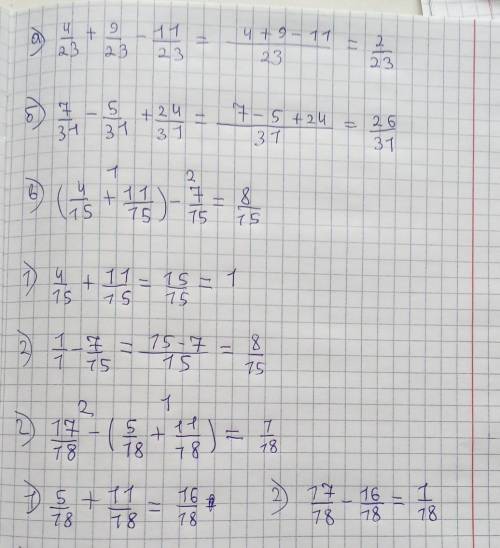 а) 4/23 + 9/23 - 11/23 = (4+9-11)/23 = 2/23
б) 7/31 - 5/31 + 24/31 = (7-5+24)/31 = 26/31
1 2
в) (4/15 + 11/15) - 7/15 = 8/15
1) 4/15 + 11/15 = 15/15 = 1
2) 1/1 - 7/15 = (15-7)/15 = 8/15
2 1
г) 17/18 - (5/18 + 11/18) = 1/18
1) 5/18 + 11/18 = 16/18 2) 17/18 - 16/18 = 1/18